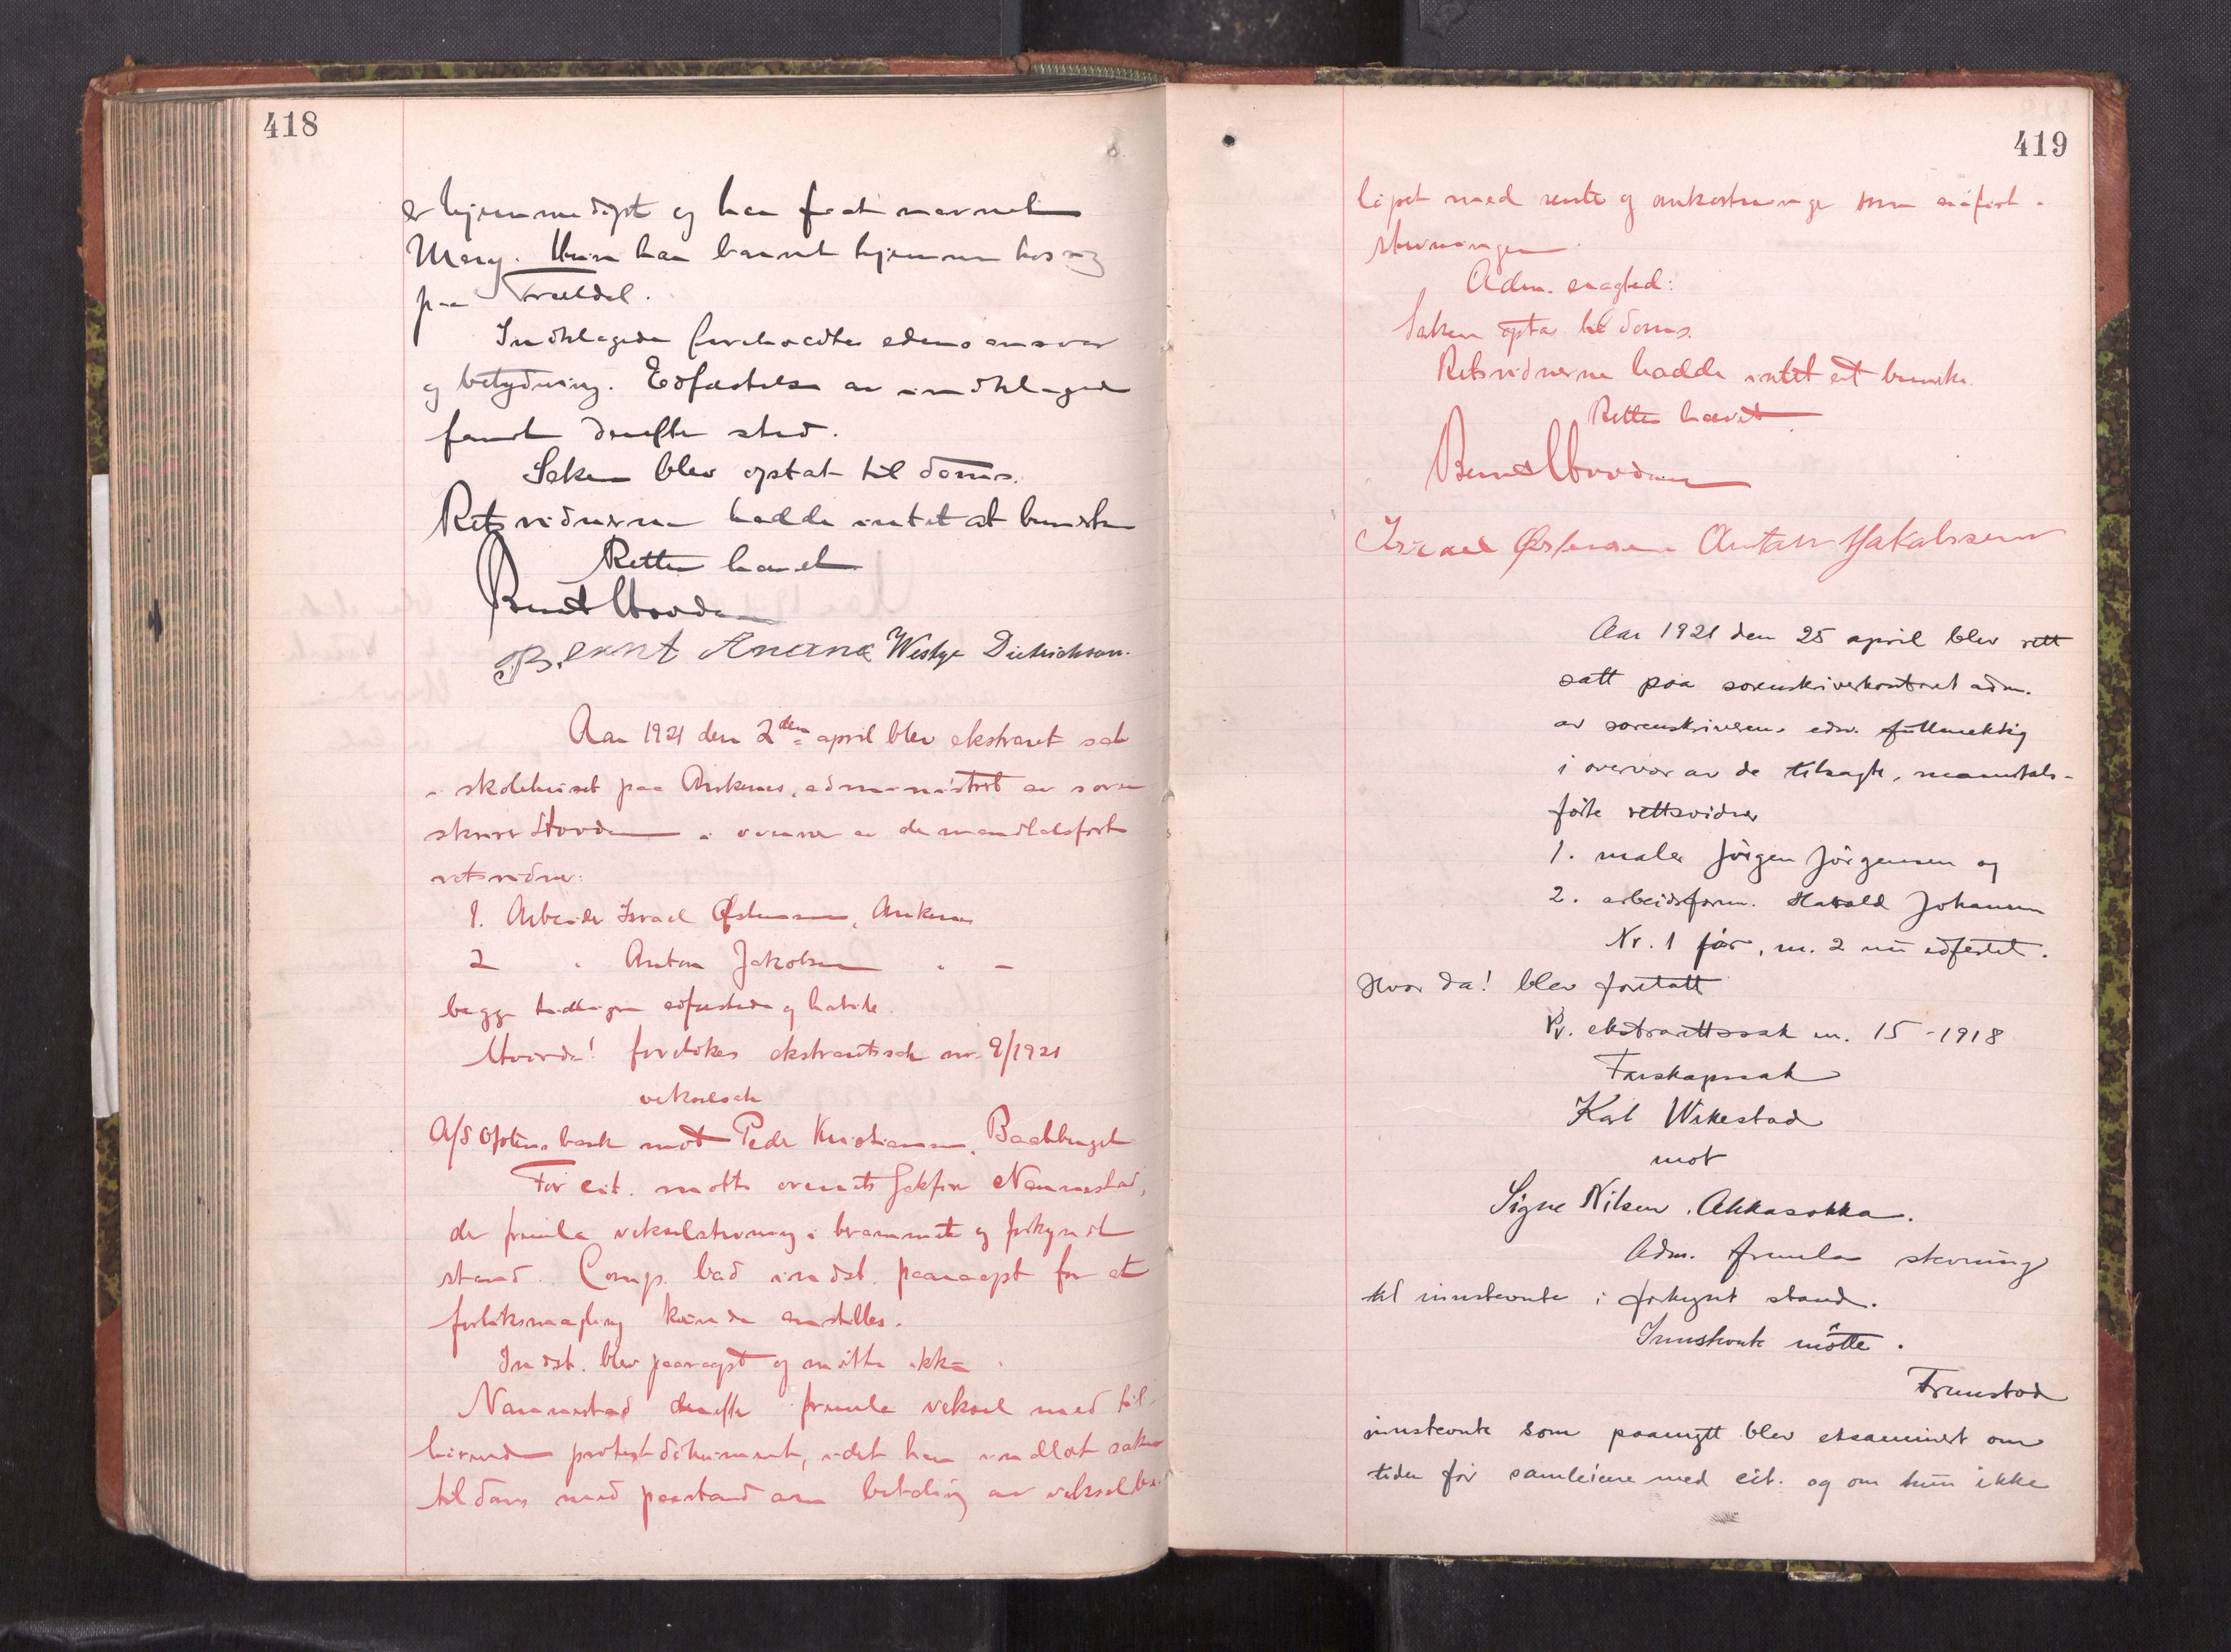 418
er hjemmedøpt og har faat navnet
Mary. Hun har barnet hjemme hos sig
paa Trældal.
Indklagede foreholdtes edens ansvar
og betydning. Edfæstelse av indklagede
fandt derefter sted.
Saken blev optat til doms.
Retsvidnerne hadde intet at bemerke
Retten hævet
Bernt Hovdan
Bernt Westye Dietrichson.
Aar 1921 den 2den april blev ekstraret sat
i skolehuset paa Ankenes, administrert av soren
skriver Hovdan i overvær av de mandtalsførte
retsvidner:
1. Arbeider Israel Østensen, Ankenes
2 " Anton Jakobsen " -
begge tidligere edfæstede og habile.
Hvorda! foretokes ekstraretssak nr. 9/1921
vekselsak
A/S Ofotens bank mot Peder Kristiansen, Beisfjord
For cit. møtte overrets Nannestad,
der fremla vekselstevning i berammet og forkyndt
stand. Comp. bad indst. paaropt for at
forliksmægling kunde anstilles.
Indst. blev paaropt og møtte ikke.
Nannestad derefter fremla veksel med til-
hørende protestdokument, idet han indlot saken
til doms med paastand om betaling av vekselbe-
419
løpet med rente og omkostninger som anført i
stevningen.
Adm. eragted:
Saken optas til doms.
Retsvidnerne hadde intet at bemerke.
Retten hævet
Bernt Hovdan
Israel Østensen Anton Jakobsen
Aar 1921 den 25 april blev rett
satt paa sorenskriverkontoret adm.
av sorenskriverens edsv. fullmektig
i overvær av de tilsagte, manntals-
førte rettsvidner
1. maler Jörgen Jörgensen og
2. arbeidsform. Harald Johansen
Nr. 1 før, nr. 2 nu edfestet.
Hvor da! blev foretatt
Pr. ekstrarettssak nr. 15 - 1918
Farskapssak
Karl Wikestad
mot
Signe Nilsen, Akkasokka.
Adm. fremla stevning
til innstevnte i forkynt stand.
Innstevnte møtte.
Fremstod
innstevnte som paanytt blev eksaminert om
tiden for samleiene med cit. og om hun ikke